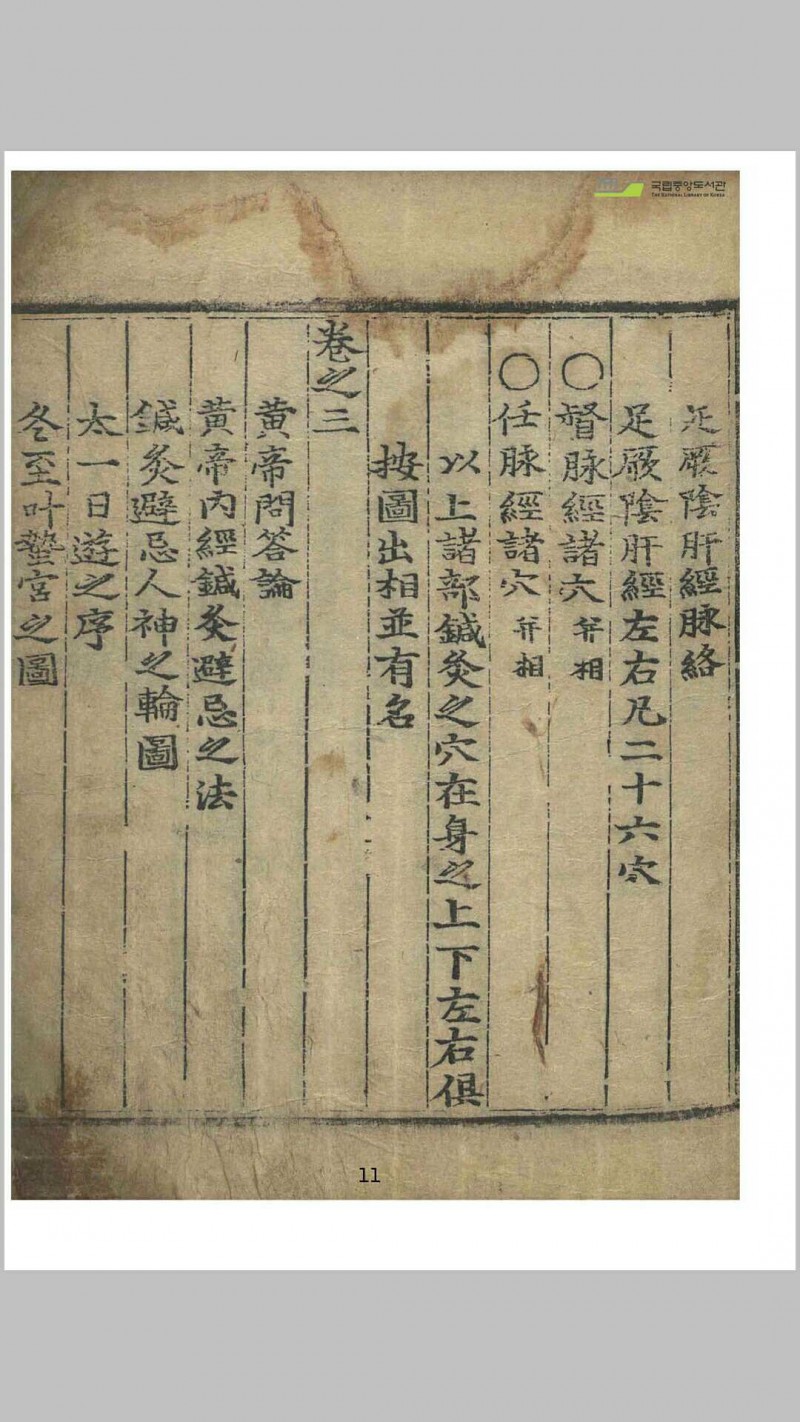 국립중앙도서관
THE NATIONAL LIBRARY OF KOREA
足厥陰肝經脉絡
足厥陰肝經左右凡二十六穴
〇督脉經諸穴 并相
〇任脉經諸穴 并相
以上諸部鍼灸之穴在身之上下左右俱
按圖出相並有名
卷之三
黄帝問答論
黄帝内經鍼灸避忌之法
鍼灸避忌人神之輪圖
太一日遊之序
冬至叶蟄宮之圖
11